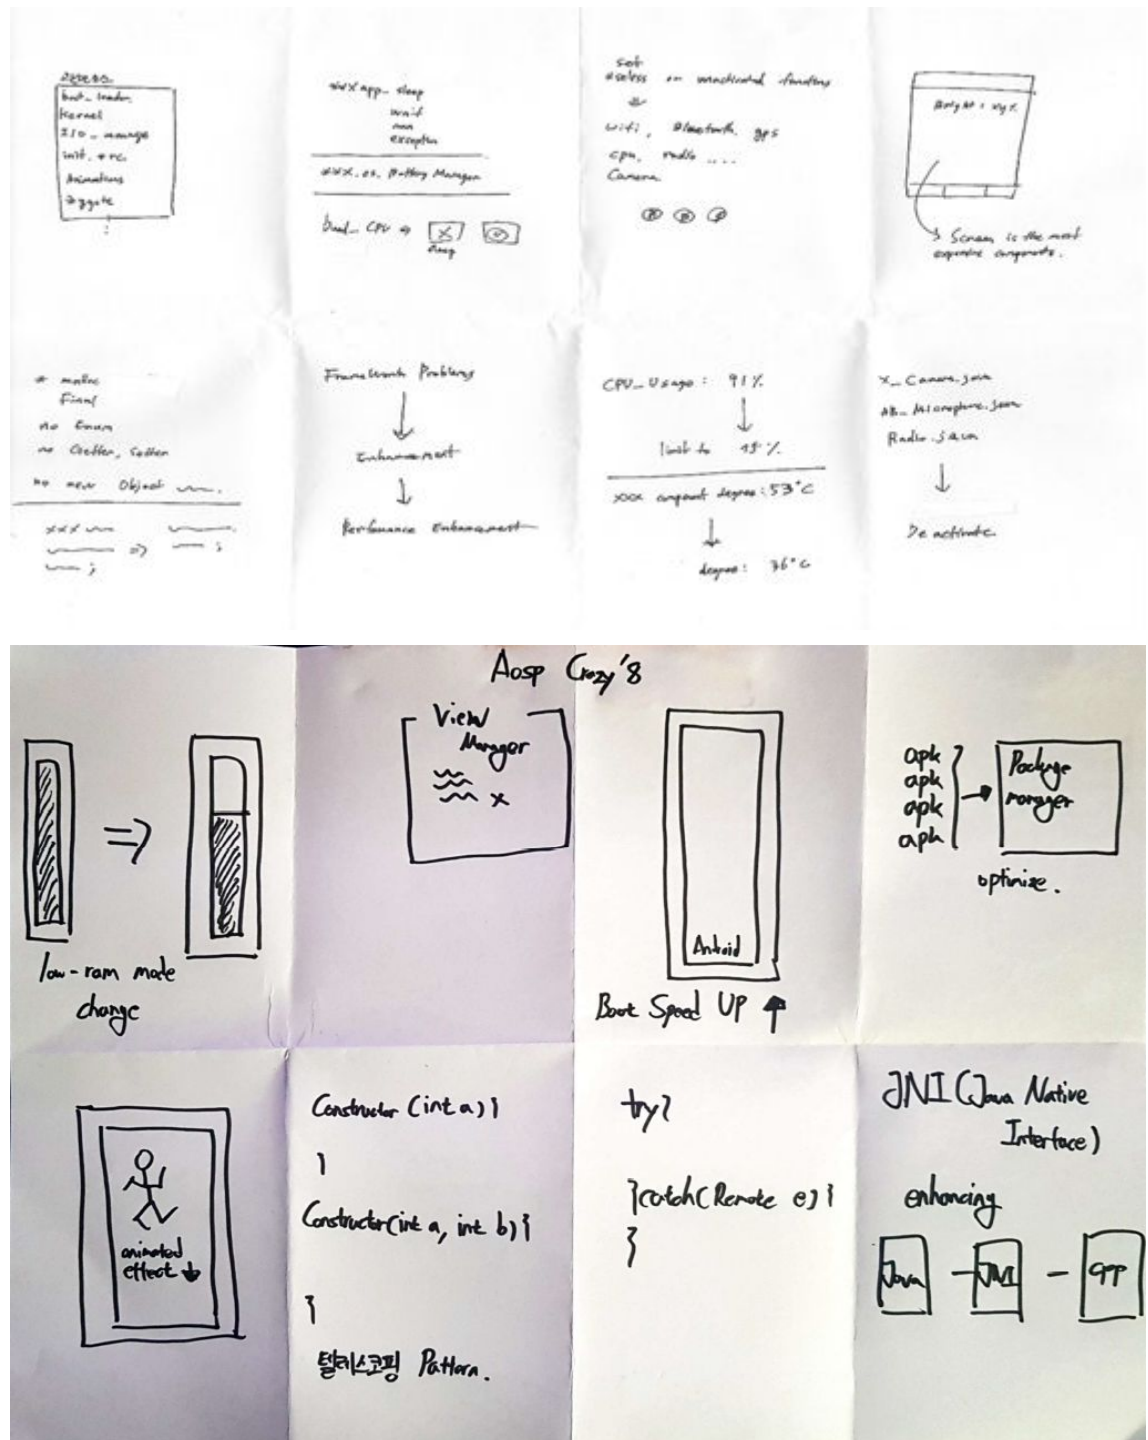 boot_loader
Kernel
I/O_manage
init.*rc.
Animations
Zygote
xxx app_sleep
wait
run
exception
xxx.os. Battery Manager
dual_CPU ⇒ X
set
useless or unactivated functions
wifi, Bluetooth, gps
cpu, radio ....
Camera
Bright : xy%
Screen is the most
expensive components.
Final
no Enum
no Getter, Setter
no new Object
xxx
Framework Problems
Enhancement
Performance Enhancement
CPU_Usage : 91%
limit to 45%
xxx component degree : 53°C
degree : 36°C
X_Camera.java
AB_Microphone.java
Radio.java
Deactivate
Aosp Crazy'8
low-ram mode
change
View
Manager
x
Android
Boot Speed UP ↑
apk
apk
apk
apk
Package
manager
optimize.
animated
effect ↓
Constructor (int a) {
}
Constructor(int a, int b) {
}
텔레스코핑 Pattern.
try{
}catch(Remote e) {
}
JNI (Java Native
Interface)
enhancing
Java - JNI - CPP